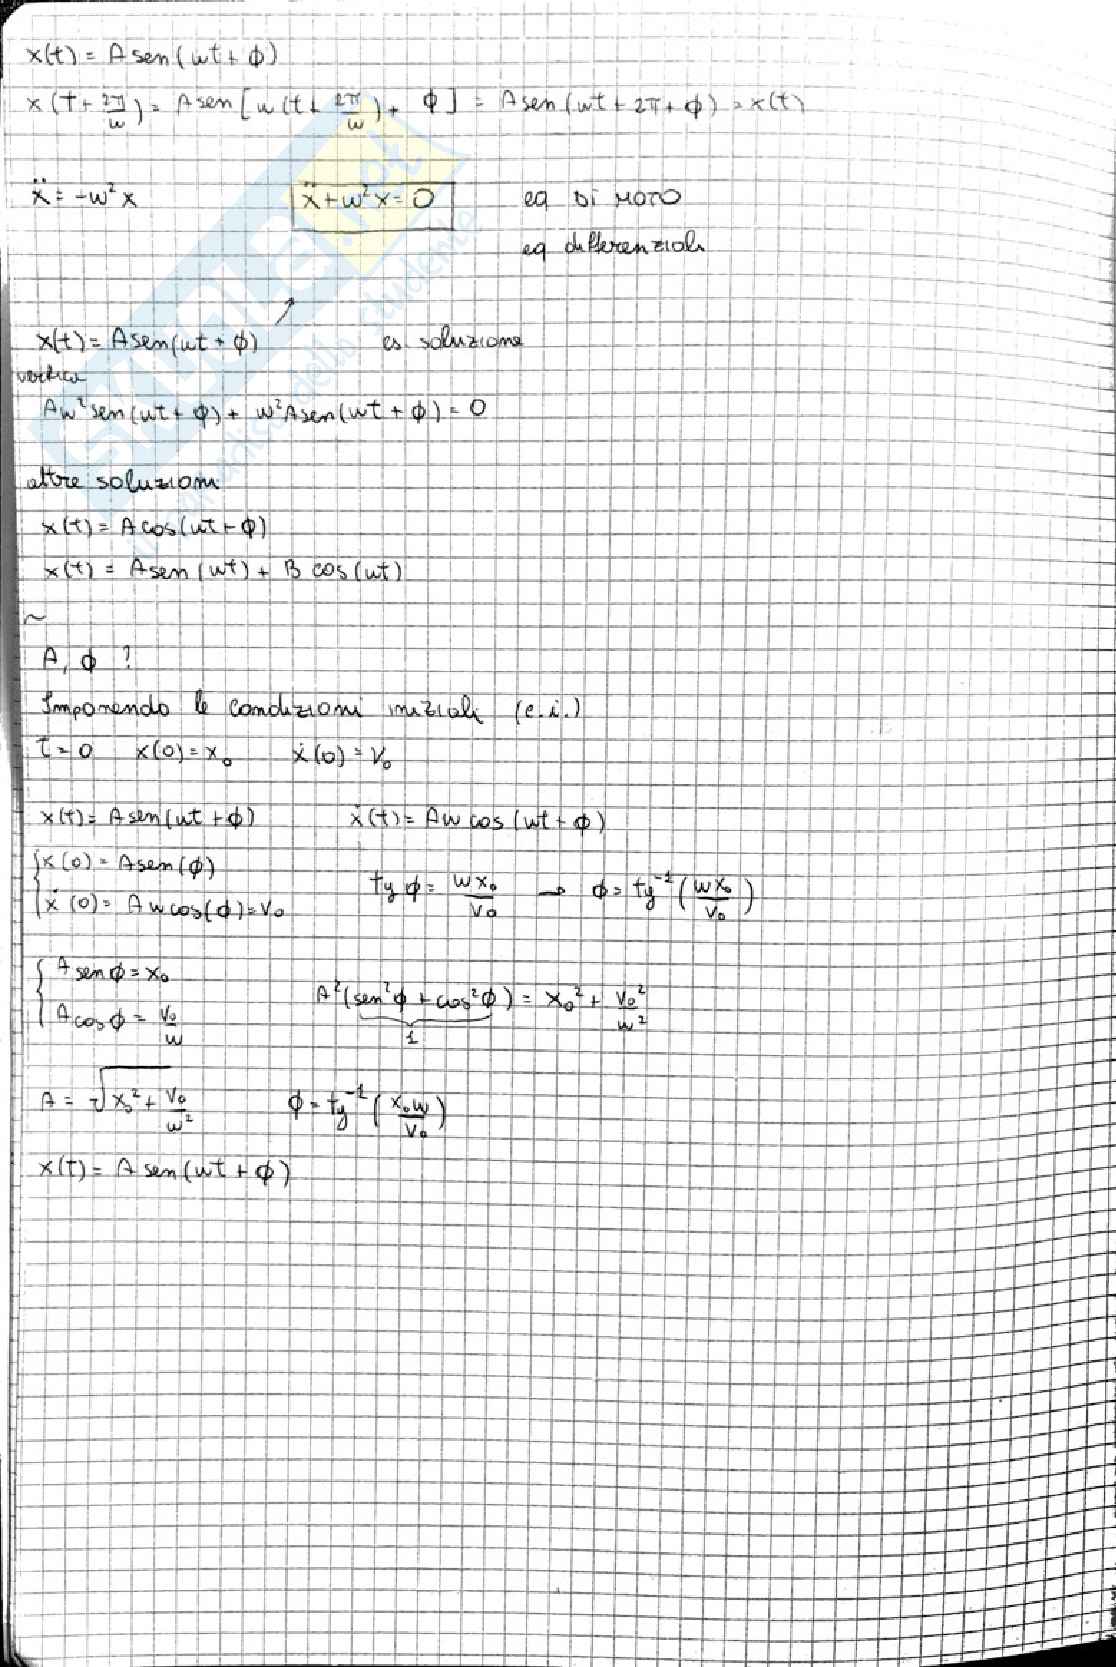 x(t) = A sen(ωt + ϕ)
x(t + 2π/ω) = A sen[ω(t + 2π/ω) + ϕ] = A sen(ωt + 2π + ϕ) = x(t)
ẍ = -ω²x    ẍ + ω²x = 0    eq DI MOTO
eq differenziali
x(t) = A sen(ωt + ϕ)    es. soluzione
verifica
Aω²sen(ωt + ϕ) + ω²A sen(ωt + ϕ) = 0
altre soluzioni
x(t) = A cos(ωt + ϕ)
x(t) = A sen(ωt) + B cos(ωt)
~
A, ϕ ?
Imponendo le condizioni iniziali (c.i.)
t = 0    x(0) = x₀    ẋ(0) = v₀
x(t) = A sen(ωt + ϕ)    ẋ(t) = Aω cos(ωt + ϕ)
x(0) = A sen(ϕ)
ẋ(0) = Aω cos(ϕ) = v₀    tg ϕ = ωx₀/v₀ → ϕ = tg⁻¹(ωx₀/v₀)
A sen ϕ = x₀
A cos ϕ = v₀/ω    A²(sen²ϕ + cos²ϕ) = x₀² + v₀²/ω²
1
A = √x₀² + v₀/ω²    ϕ = tg⁻¹(x₀ω/v₀)
x(t) = A sen(ωt + ϕ)
SKUOLA.net
dello studente